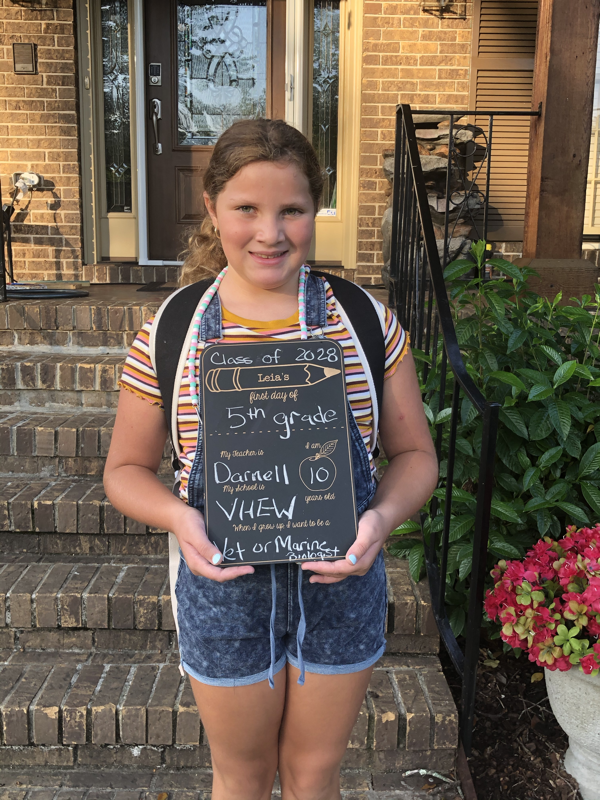 Class of 2028
Leia's
first day of
5th grade
My Teacher is
I am
Darnell
10
My School is
years old
VHEW
When I grow up I want to be a
Vet or Marine
Biologist